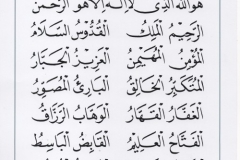 هو الله الذي لا إله إلا هو الرحمن
الرَّحِيمُ الْمَلِكُ الْقُدُّوسُ السَّلَامُ
الْمُؤْمِنُ الْمُهَيْمِنُ الْعَزِيزُ الْجَبَّارُ
الْمُتَكَبِّرُ الْخَالِقُ الْبَارِئُ الْمُصَوِّرُ
الْغَفَّارُ الْقَهَّارُ الْوَهَّابُ الرَّزَّاقُ
الْفَتَّاحُ الْعَلِيمُ الْقَابِضُ الْبَاسِطُ